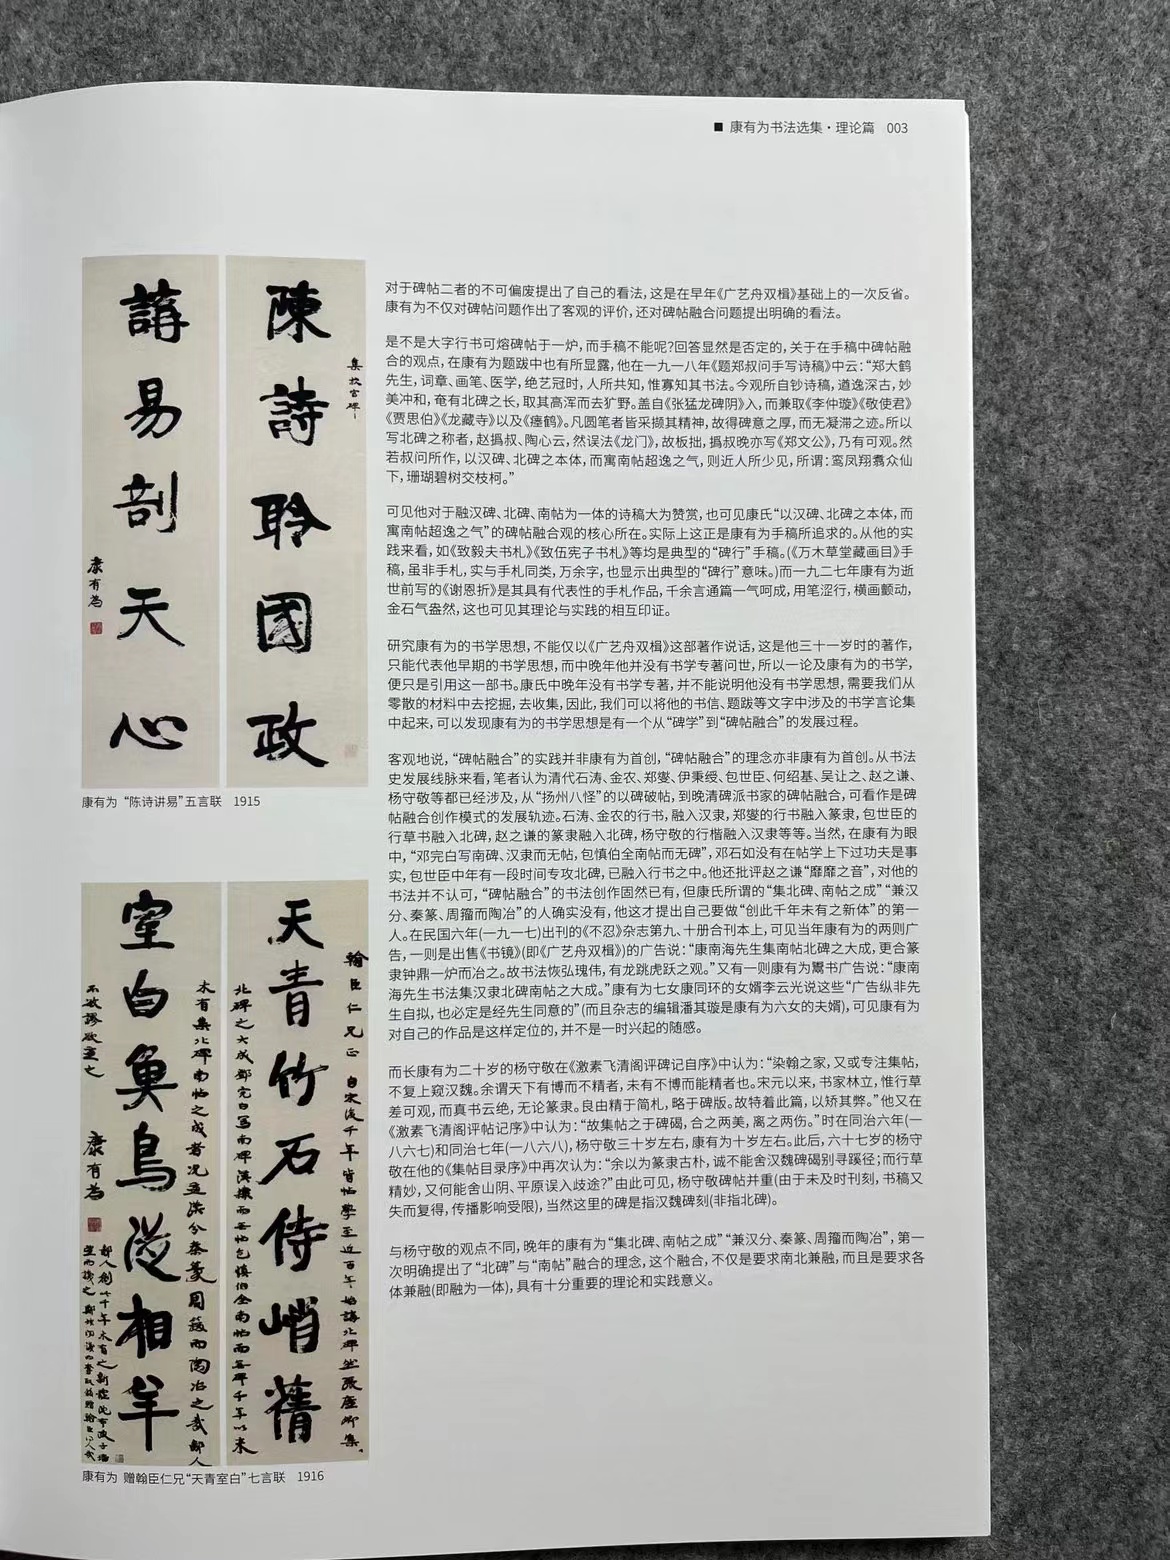 ■ 康有为书法选集·理论篇 003
陳詩聆國政
集故宫碑
講易剖天心
康有為
康有为 “陈诗讲易”五言联 1915
天青竹石侍峭蒨
翰臣仁兄正
室白魚鳥從相羊
康有為
康有为 赠翰臣仁兄“天青室白”七言联 1916
对于碑帖二者的不可偏废提出了自己的看法,这是在早年《广艺舟双楫》基础上的一次反省。
康有为不仅对碑帖问题作出了客观的评价,还对碑帖融合问题提出明确的看法。
是不是大字行书可熔碑帖于一炉,而手稿不能呢?回答显然是否定的,关于在手稿中碑帖融
合的观点,在康有为题跋中也有所显露,他在一九一八年《题郑叔问手写诗稿》中云:“郑大鹤
先生,词章、画笔、医学,绝艺冠时,人所共知,惟寡知其书法。今观所自钞诗稿,遒逸深古,妙
美冲和,奄有北碑之长,取其高浑而去犷野。盖自《张猛龙碑阴》入,而兼取《李仲璇》《敬使君》
《贾思伯》《龙藏寺》以及《瘗鹤》。凡圆笔者皆采撷其精神,故得碑意之厚,而无凝滞之迹。所以
写北碑之称者,赵撝叔、陶心云,然误法《龙门》,故板拙,撝叔晚亦写《郑文公》,乃有可观。然
若叔问所作,以汉碑、北碑之本体,而寓南帖超逸之气,则近人所少见,所谓:鸾凤翔翥众仙
下,珊瑚碧树交枝柯。”
可见他对于融汉碑、北碑、南帖为一体的诗稿大为赞赏,也可见康氏“以汉碑、北碑之本体,而
寓南帖超逸之气”的碑帖融合观的核心所在。实际上这正是康有为手稿所追求的。从他的实
践来看,如《致毅夫书札》《致伍宪子书札》等均是典型的“碑行”手稿。(《万木草堂藏画目》手
稿,虽非手札,实与手札同类,万余字,也显示出典型的“碑行”意味。)而一九二七年康有为逝
世前写的《谢恩折》是其具有代表性的手札作品,千余言通篇一气呵成,用笔涩行,横画颤动,
金石气盎然,这也可见其理论与实践的相互印证。
研究康有为的书学思想,不能仅以《广艺舟双楫》这部著作说话,这是他三十一岁时的著作,
只能代表他早期的书学思想,而中晚年他并没有书学专著问世,所以一论及康有为的书学,
便只是引用这一部书。康氏中晚年没有书学专著,并不能说明他没有书学思想,需要我们从
零散的材料中去挖掘,去收集,因此,我们可以将他的书信、题跋等文字中涉及的书学言论集
中起来,可以发现康有为的书学思想是有一个从“碑学”到“碑帖融合”的发展过程。
客观地说,“碑帖融合”的实践并非康有为首创,“碑帖融合”的理念亦非康有为首创。从书法
史发展线脉来看,笔者认为清代石涛、金农、郑燮、伊秉绶、包世臣、何绍基、吴让之、赵之谦、
杨守敬等都已经涉及,从“扬州八怪”的以碑破帖,到晚清碑派书家的碑帖融合,可看作是碑
帖融合创作模式的发展轨迹。石涛、金农的行书,融入汉隶,郑燮的行书融入篆隶,包世臣的
行草书融入北碑,赵之谦的篆隶融入北碑,杨守敬的行楷融入汉隶等等。当然,在康有为眼
中,“邓完白写南碑、汉隶而无帖,包慎伯全南帖而无碑”,邓石如没有在帖学上下过功夫是事
实,包世臣中年有一段时间专攻北碑,已融入行书之中。他还批评赵之谦“靡靡之音”,对他的
书法并不认可,“碑帖融合”的书法创作固然已有,但康氏所谓的“集北碑、南帖之成”“兼汉
分、秦篆、周籀而陶冶”的人确实没有,他这才提出自己要做“创此千年未有之新体”的第一
人。在民国六年(一九一七)出刊的《不忍》杂志第九、十册合刊本上,可见当年康有为的两则广
告,一则是出售《书镜》(即《广艺舟双楫》)的广告说:“康南海先生集南帖北碑之大成,更合篆
隶钟鼎一炉而冶之。故书法恢弘瑰伟,有龙跳虎跃之观。”又有一则康有为鬻书广告说:“康南
海先生书法集汉隶北碑南帖之大成。”康有为七女康同环的女婿李云光说这些“广告纵非先
生自拟,也必定是经先生同意的”(而且杂志的编辑潘其璇是康有为六女的夫婿),可见康有为
对自己的作品是这样定位的,并不是一时兴起的随感。
而长康有为二十岁的杨守敬在《激素飞清阁评碑记自序》中认为:“染翰之家,又或专注集帖,
不复上窥汉魏。余谓天下有博而不精者,未有不博而能精者也。宋元以来,书家林立,惟行草
差可观,而真书云绝,无论篆隶。良由精于简札,略于碑版。故特着此篇,以矫其弊。”他又在
《激素飞清阁评帖记序》中认为:“故集帖之于碑碣,合之两美,离之两伤。”时在同治六年(一
八六七)和同治七年(一八六八),杨守敬三十岁左右,康有为十岁左右。此后,六十七岁的杨守
敬在他的《集帖目录序》中再次认为:“余以为篆隶古朴,诚不能舍汉魏碑碣别寻蹊径;而行草
精妙,又何能舍山阴、平原误入歧途?”由此可见,杨守敬碑帖并重(由于未及时刊刻,书稿又
失而复得,传播影响受限),当然这里的碑是指汉魏碑刻(非指北碑)。
与杨守敬的观点不同,晚年的康有为“集北碑、南帖之成”“兼汉分、秦篆、周籀而陶冶”,第一
次明确提出了“北碑”与“南帖”融合的理念,这个融合,不仅是要求南北兼融,而且是要求各
体兼融(即融为一体),具有十分重要的理论和实践意义。